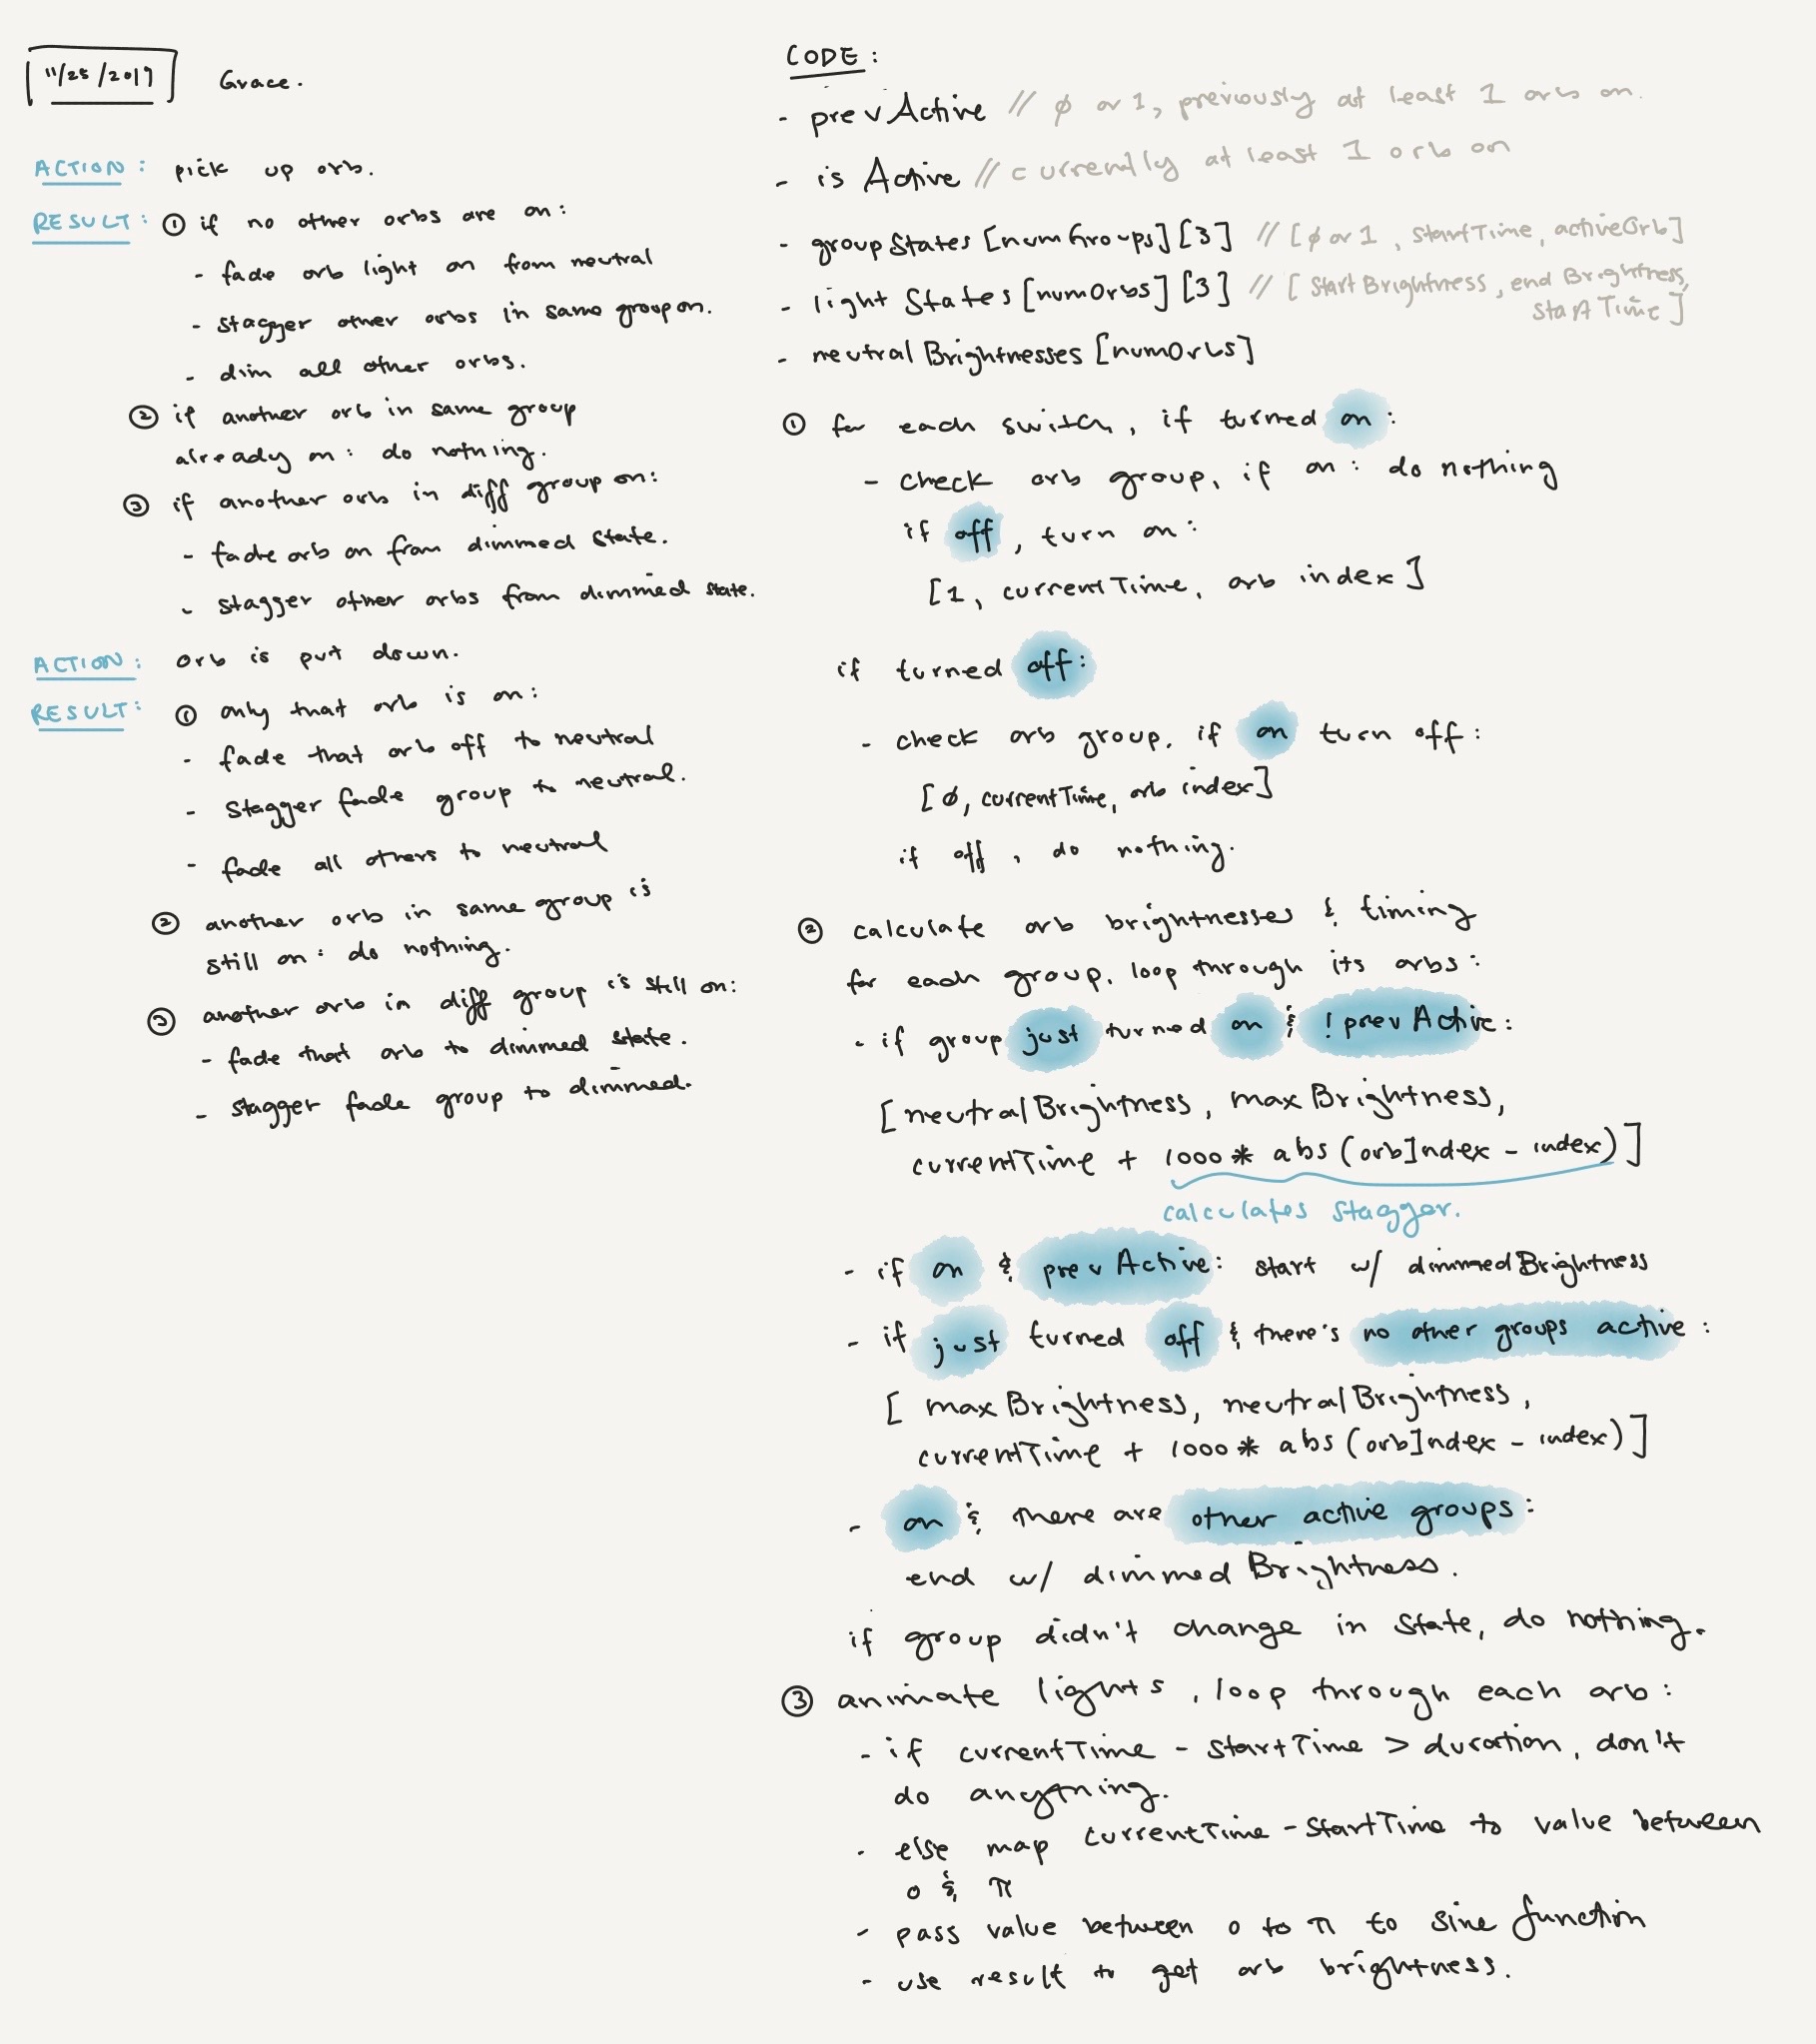 11/25/2019 Grace.
ACTION: pick up orb.
RESULT: ① if no other orbs are on:
- fade orb light on from neutral
- stagger other orbs in same group on.
- dim all other orbs.
② if another orb in same group
already on: do nothing.
③ if another orb in diff group on:
- fade orb on from dimmed state.
- stagger other orbs from dimmed state.
ACTION: orb is put down.
RESULT: ① only that orb is on:
- fade that orb off to neutral
- stagger fade group to neutral.
- fade all others to neutral
② another orb in same group is
still on: do nothing.
③ another orb in diff group is still on:
- fade that orb to dimmed state.
- stagger fade group to dimmed.
CODE:
- prevActive // ø or 1, previously at least 1 orb on.
- isActive // currently at least 1 orb on
- groupStates [numGroups][3] // [ø or 1, startTime, activeOrb]
- lightStates [numOrbs][3] // [StartBrightness, endBrightness,
startTime]
- neutralBrightnesses [numOrbs]
① for each switch, if turned on:
- check orb group, if on: do nothing
if off, turn on:
[1, currentTime, orb index]
if turned off:
- check orb group. if on turn off:
[ø, currentTime, orb index]
if off, do nothing.
② calculate orb brightnesses & timing
for each group, loop through its orbs:
- if group just turned on & !prevActive:
[neutralBrightness, maxBrightness,
currentTime + 1000 * abs(orbIndex - index)]
calculates stagger.
- if on & prevActive: start w/ dimmedBrightness
- if just turned off & there's no other groups active:
[maxBrightness, neutralBrightness,
currentTime + 1000 * abs(orbIndex - index)]
- on & there are other active groups:
end w/ dimmedBrightness.
if group didn't change in state, do nothing.
③ animate lights, loop through each orb:
- if currentTime - startTime > duration, don't
do anything.
- else map currentTime - startTime to value between
0 & π
- pass value between 0 to π to sine function
- use result to get orb brightness.